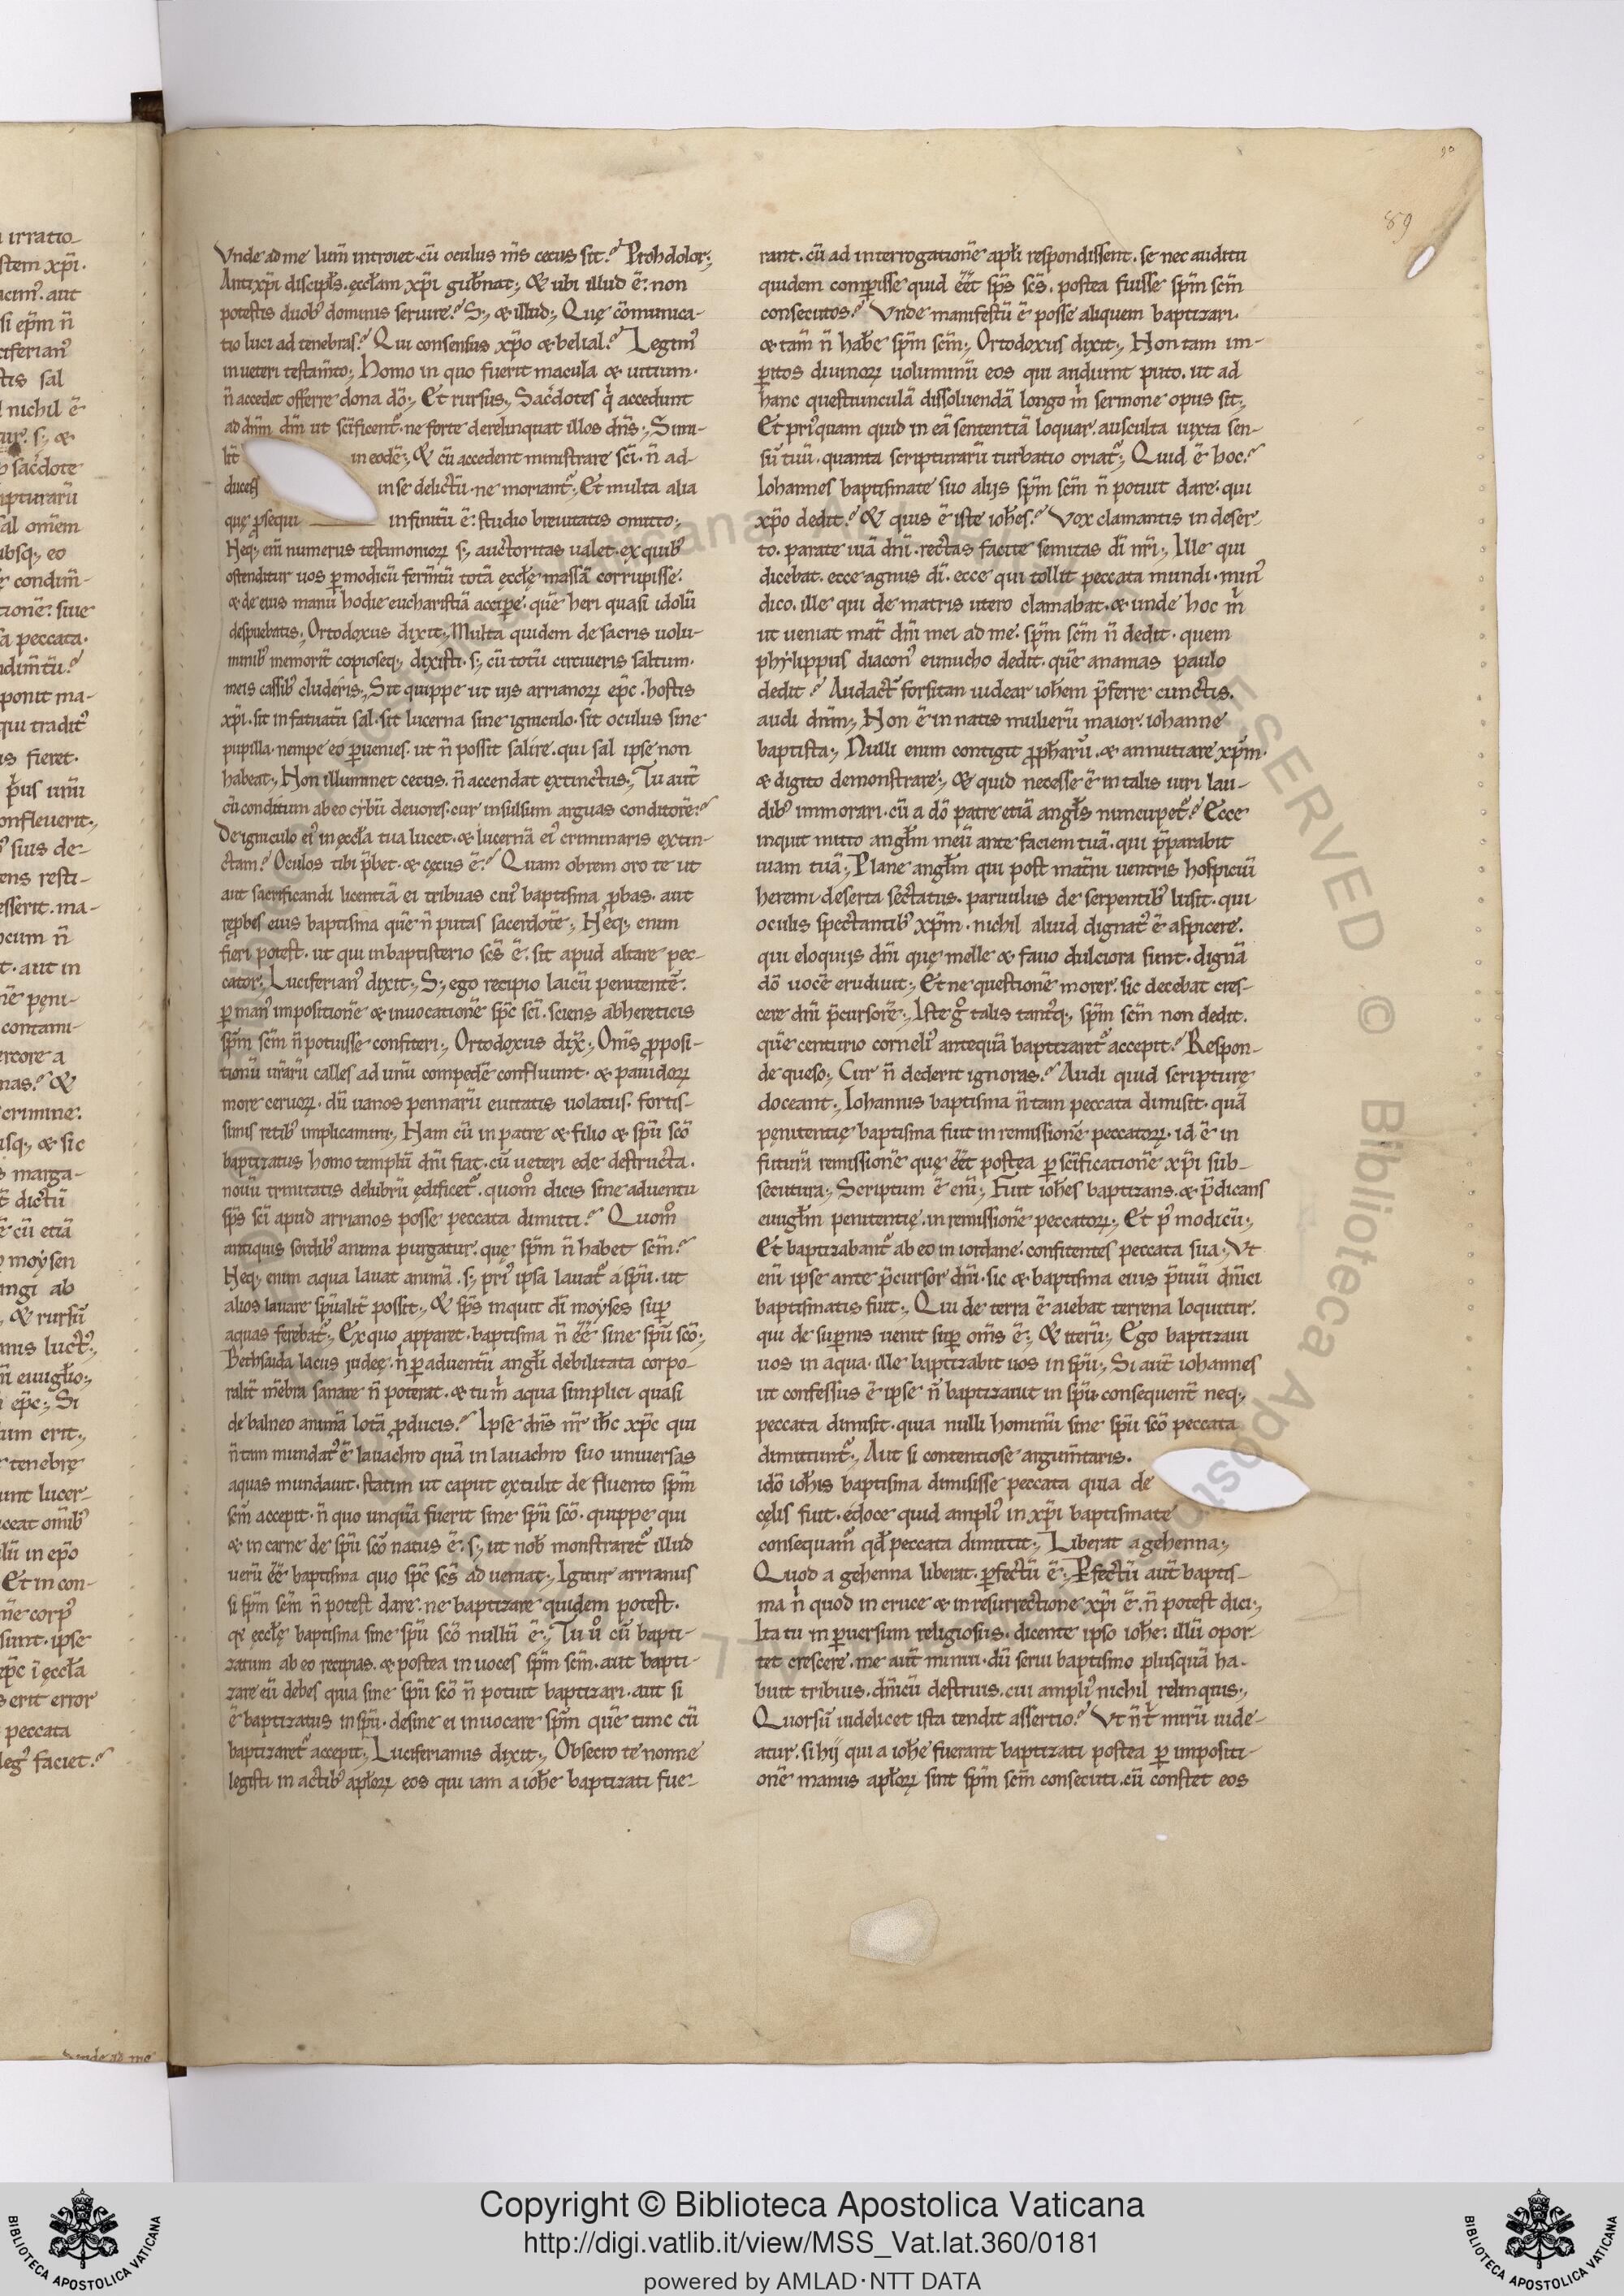 irratio-
stem xp̄i.
acim᾿. aut
si ep̄m n̄
ciferian᾿
tis sal
nichil ē
tur. s;, &
sac̄dote
ripturarū
sal om̄em
absq;, eo
ę condim̄-
tionē: siue
a peccata.
ndim̄tū?
ponit ma-
qui tradit᾿
is fieret.
p̄us unū
onfleuerit;,
sius de-
ens resti-
esserit. ma-
ocum n̄
t. aut in
nē pęni-
contami-
ercore a
nas? &
crimine:
isq;, & sic
s marga-
t̄ dictū
ē cū etiā
moysen
ingi ab
, & rursū
anis luct᾿;,
euuḡlio;,
ep̄c;, Si
um erit;,
tenebrę
unt lucer-
ceat omib᾿
lū in ep̄o
Et in con-
nē corp᾿
sunt. ipse
ep̄c ī ęccl̄a
s erit error
peccata
leg᾿ faciet?
unde ad me
90
89
Vnde ad me lum̄ introiet. cū oculus m̄s cecus sit? Proh dolor;,
Antixp̄i discipl̄s. ęccl̄am xp̄i gub̄nat;, & ubi illud ē: non
potestis duob᾿ dominis seruire? S;, & illud;, Quę cōmunica-
tio luci ad tenebras? Qui consensus xp̄o & belial? Legim᾿
in ueteri testam̄to;, Homo in quo fuerit macula & uitium.
n̄ accedet offerre dona dō;, Et rursus;, Sac̄dotes q̇ accedunt
ad dn̄m dm̄ ut sc̄ificent᷑. ne forte derelinquat illos dn̄s;, Simi-
lit̄ in eodē;, & cū accedent ministrare sc̄i. n̄ ad-
ducest in se delictū. ne moriant᷑;, Et multa alia
quę ꝓsequi infinitū ē: studio breuitatis omitto;,
Neq;, eni̅ numerus testimonioꝝ s;, auctoritas ualet. ex quib᾿
ostenditur uos ꝑ modicū ferm̄tū totā ęccl̄ę massā corrupisse.
& de eius manu hodie eucharistiā acciꝑe. quē heri quasi idolū
despuebatis;, Ortodoxus dixit;, Multa quidem de sacris uolu-
minib᾿ memorit̄ copioseq;, dixisti. s;, cū totū circuieris saltum.
meis cassib᾿ cluderis;, Sit quippe ut uis arrianoꝝ ep̄c. hostis
xp̄i. sit infatuatū sal. sit lucerna sine igniculo. sit oculus sine
pupilla. nempe eo ꝑuenies. ut n̄ possit salire. qui sal ipse non
habeat;, Non illuminet cecus. n̄ accendat extinctus;, Tu aut̄
cū conditum ab eo cybū deuores. cur insulsum arguas conditorē?
De igniculo ei᾿ in ęccl̄a tua lucet. & lucernā ei᾿ criminaris extin-
ctam? Oculos tibi p̄bet. & cęcus ē? Quam obrem oro te ut
aut sacrificandi licentiā ei tribuas cui᾿ baptisma ꝓbas. aut
reꝓbes eius baptisma quē n̄ putas sacerdotē;, Neq;, enim
fieri potest. ut qui in baptisterio sc̄s ē. sit apud altare pec-
cator;, Luciferian᾿ dixit;, S;, ego recipio laicū penitentē.
ꝑ man᾿ impositionē & inuocationē sp̄c sc̄i. sciens ab hereticis
sp̄m sc̄m n̄ potuisse confiteri;, Ortodoxus dix̄;, Om̄s ꝓposi-
tionū ūrārū calles ad unū compedē confluunt. & pauidoꝝ
more ceruoꝝ. dū uanos pennarū euitatis uolatus. fortis-
simis retib᾿ implicamini;, Nam cū in patre & filio & sp̄u sc̄o
baptizatus homo templū dn̄i fiat. cū ueteri ede destructa.
nouū trinitatis delubrū ędificet᷑. quom̊ dicis sine aduentu
sp̄s sc̄i apud arrianos posse peccata dimitti? Quom̊
antiquis sordib᾿ anima purgatur. quę sp̄m n̄ habet sc̄m?
Neq;, enim aqua lauat animā. s;, pri᾿ ipsa lauat᷑ a sp̄u. ut
alios lauare sp̄ualit̄ possit;, & sp̄s inquit dn̄i moyses suꝑ
aquas ferebat᷑;, Ex quo apparet. baptisma n̄ eē̄ sine sp̄u sc̄o;,
Bethsaida lacus judeę. ṅ ꝑ aduentū angl̄i debilitata corpo-
ralit̄ mēbra sanare n̄ poterat. & tu ṁ aqua simplici quasi
de balneo animā lotā ꝓducis? Ipse dn̄s nr̄ ih̄c xp̄c qui
n̄ tam mundat᾿ ē lauachro quā in lauachro suo uniuersas
aquas mundauit. statim ut caput extulit de fluento sp̄m
sc̄m accepit. n̄ quo unquā fuerit sine sp̄u sc̄o. quippe qui
& in carne de sp̄u sc̄o natus ē. s;, ut nob̄ monstraret᷑ illud
uerū eē̄ baptisma quo sp̄c sc̄s adueniat;, Igitur arrianus
si sp̄m sc̄m n̄ potest dare. ne baptizare quidem potest.
qꝛ ęccl̄ę baptisma sine sp̄u sc̄o nullū ē;, Tu ů cū bapti-
zatum ab eo recipias. & postea inuoces sp̄m sc̄m. aut bapti-
zare eū debes quia sine sp̄u sc̄o n̄ potuit baptizari. aut si
ē baptizatus in sp̄u. desine ei inuocare sp̄m quē tunc cū
baptizaret᷑ accepit;, Luciferianus dixit;, Obsecro te nonne
legisti in actib᾿ apl̄oꝝ eos qui iam a ioh̄e baptizati fue-
rant. cū ad interrogationē apl̄i respondissent. se nec auditu
quidem comꝑisse quid eē̄t sp̄s sc̄s. postea fuisse sp̄m sc̄m
consecutos? Vnde manifestū ē posse aliquem baptizari.
& tam̄ n̄ hab̄e sp̄m sc̄m;, Ortodoxus dixit;, Non tam im-
ꝑitos diuinoꝝ uoluminū eos qui audiunt puto. ut ad
hanc questiunculā dissoluendā longo ṁ sermone opus sit;,
Et pri᾿quam quid in eā sententiā loquar. ausculta iuxta sen-
sū tuū. quanta scripturarū turbatio oriat᷑;, Quid ē hoc?
Iohannes baptismate suo alijs sp̄m sc̄m n̄ potuit dare. qui
xp̄o dedit? & quis ē iste ioh̄es? Vox clamantis in deser-
to. parate uiā dn̄i. rectas facite semitas dī nr̄i;, Ille qui
dicebat. ecce agnus dī. ecce qui tollit peccata mundi. min᾿
dico. ille qui de matris utero clamabat. & unde hoc ṁ
ut ueniat mat̄ dn̄i mei ad me. sp̄m sc̄m n̄ dedit. quem
phylippus diacon᾿ eunucho dedit. quē ananias paulo
dedit? Audact᷑ forsitan uidear ioh̄em p̄ferre cunctis.
audi dn̄m;, Non ē in natis mulierū maior. iohanne
baptista;, Nulli enim contigit ꝓph̄arū. & annutiare xp̄m.
& digito demonstrare;, & quid necesse ē in talis uiri lau-
dib᾿ immorari. cū a dō patre etiā angl̄s nuncupet᷑? Ecce
inquit mitto angl̄m meū ante faciem tuā. qui p̄parabit
uiam tuā;, Plane angl̄m qui post mat̄ni uentris hospiciū
heremi deserta sectatus. paruulus de serpentib᾿ lusit. qui
oculis spectantib᾿ xp̄m. nichil aliud dignat᾿ ē aspicere.
qui eloquijs dn̄i que melle & fauo dulciora sunt. dignā
dō uocē erudiuit;, Et ne questionē morer. sic decebat cres-
cere dn̄i p̄cursorē;, Iste g̊ talis tant᾿q;, sp̄m sc̄m non dedit.
quē centurio corneli᾿ antequā baptizaret᷑ accepit? Respon-
de queso;, Cur n̄ dederit ignoras? Audi quid scripturę
doceant;, Iohannis baptisma n̄ tam peccata dimisit. quā
pęnitentię baptisma fuit in remissionē peccatoꝝ. id ē in
futurā remissionē quę eē̄t postea ꝑ sc̄ificationē xp̄i sub-
secutura;, Scriptum ē eni̅;, Fuit ioh̄es baptizans. & p̄dicans
euugl̄m penitentię. in remissionē peccatoꝝ;, Et p᾿ modicū;,
Et baptizabant᷑ ab eo in iordane. confitentes peccata sua;, Vt
eni̅ ipse ante p̄cursor dn̄i. sic & baptisma eius p̄uiū dn̄ici
baptismatis fuit;, Qui de terra ē aiebat terrena loquitur.
qui de suꝑnis uenit suꝑ om̄s ē;, & iterū;, Ego baptizaui
uos in aqua. ille baptizabit uos in sp̄u;, Si aut̄ iohannes
ut confessus ē ipse n̄ baptizauit in sp̄u. consequent̄ neq;,
peccata dimisit. quia nulli hominū sine sp̄u sc̄o peccata
dimittunt᷑;, Aut si contentiose argum̄taris.
idō ioh̄is baptisma dimisisse peccata quia de
cęlis fuit. edoce quid ampli᾿ in xp̄i baptismate
consequam᷑ qd̄ peccata dimittit;, Liberat a gehenna;,
Quod a gehenna liberat. ꝑfectū ē;, Pfectū aut̄ baptis-
ma ṅ quod in cruce & in resurrectione xp̄i ē. n̄ potest dici;,
Ita tu in ꝑuersum religiosus. dicente ipso ioh̄e. illū opor-
tet crescere. me aut̄ minui. dū serui baptismo plusquā ha-
buit tribuis. dn̄icū destruis. cui ampli᾿ nichil relinquis;,
Quorsū uidelicet ista tendit assertio? Vt n̄ t̄ mirū uide-
atur. si hij qui a ioh̄e fuerant baptizati postea ꝑ impositi-
onē manus apl̄oꝝ sint sp̄m sc̄m consecuti. cū constet eos
Copyright © Biblioteca Apostolica Vaticana
http://digi.vatlib.it/view/MSS_Vat.lat.360/0181
powered by AMLAD·NTT DATA
BIBLIOTECA APOSTOLICA VATICANA
BIBLIOTECA APOSTOLICA VATICANA